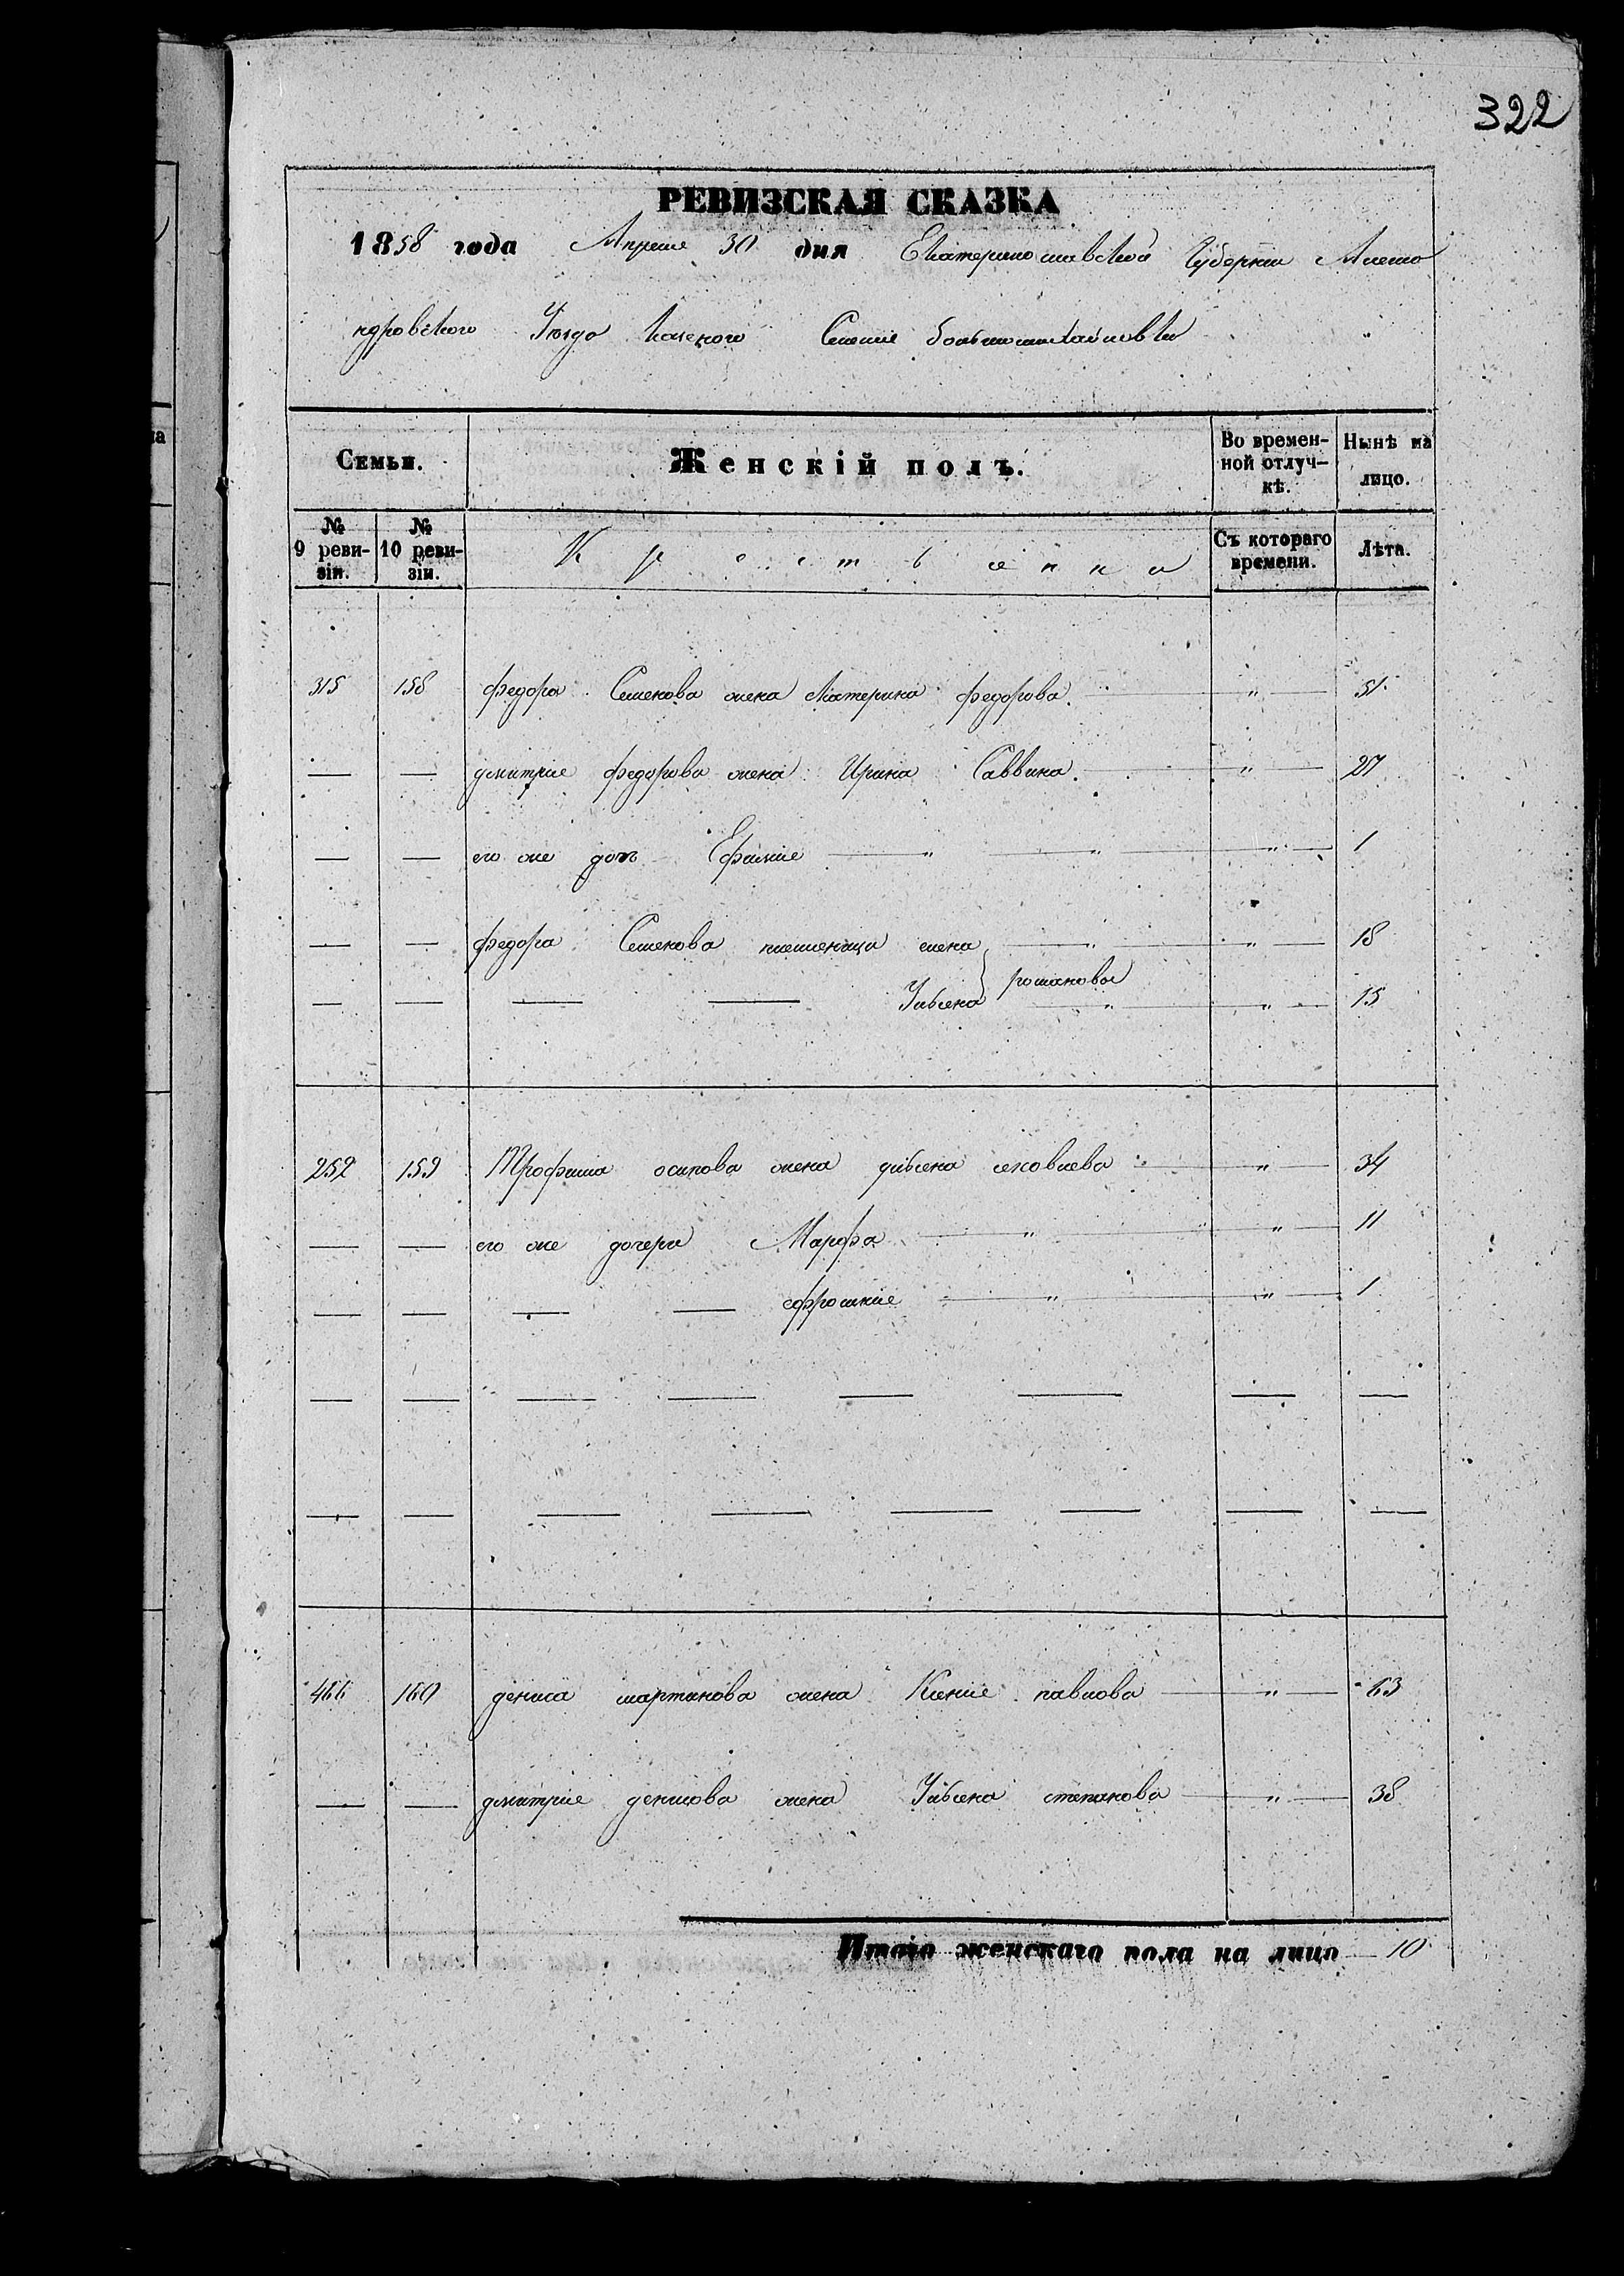 322
РЕВИЗСКАЯ СКАЗКА
1858 года Апреля 30 дня Екатеринославской Губернии Алекса
ндровского Уезда Казеного Селение
Семьи. Женскій полъ. Во времен- Нынѣ на
ной отлуч- лицо.
кѣ.
№ № К р е с т ь я н к и Съ котораго Лѣта.
9 реви- 10 реви- времени.
зіи. зіи.
315 158 федора Семенова жена Катерина федорова — " — 51
— — дмитрие федорова жена Ирина Саввина — " — 27
— — его же доч — " — " — " — 1
— — федора Семенова племеница — " — " — 18
романовы
— — — — Улияна — " — " — 15
252 159 Трофима осипова жена улияна яковлева — " — 34
— — его же дочери Марфа — " — " — 11
— — — — ефросиние — " — " — 1
— — — — — — — —
— — — — — — — —
466 160 дениса мартинова жена Ксение павлова — " — 63
— — дмитрие денисова жена Улияна степанова — " — 38
Итого женскаго пола на лицо — 10